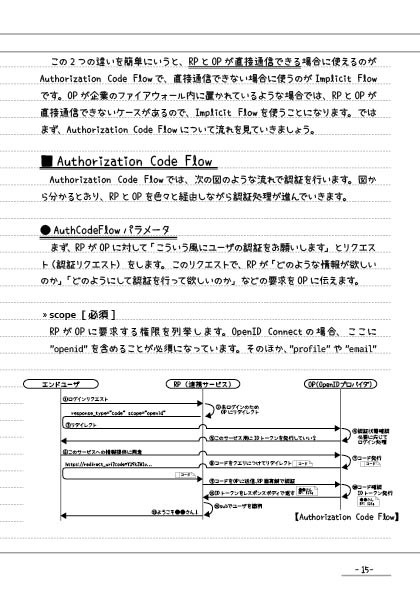 この２つの違いを簡単にいうと、RP と OP が直接通信できる場合に使えるのが
Authorization Code Flow で、直接通信できない場合に使うのが Implicit Flow
です。OP が企業のファイアウォール内に置かれているような場合では、RP と OP が
直接通信できないケースがあるので、Implicit Flow を使うことになります。では
まず、Authorization Code Flow について流れを見ていきましょう。
■ Authorization Code Flow
Authorization Code Flow では、次の図のような流れで認証を行います。図か
ら分かるとおり、RP と OP を色々と経由しながら認証処理が進んでいきます。
● AuthCodeFlow パラメータ
まず、RP が OP に対して「こういう風にユーザの認証をお願いします」とリクエス
ト（認証リクエスト）をします。このリクエストで、RP が「どのような情報が欲しい
のか」「どのようにして認証を行って欲しいのか」などの要求を OP に伝えます。
» scope [ 必須 ]
RP が OP に要求する権限を列挙します。OpenID Connect の場合、ここに
"openid" を含めることが必須になっています。そのほか、"profile" や "email"
エンドユーザ
RP（連携サービス）
OP(OpenIDプロバイダ)
①ログインリクエスト
②未ログインのため
OPにリダイレクト
response_type="code" scope="openid"
③リダイレクト
④認証状態確認
必要に応じて
ログイン処理
⑤このサービス用にIDトークンを発行していい？
⑥このサービスへの情報提供に同意
⑦コード発行
コード
https://redirect_uri?code=
⑧コードをクエリにつけてリダイレクト
コード
コード
⑨コードをOPに送信、RP
⑩コード確認
IDトークン発行
⑪IDトークンをレスポンスボディで返す
⑫subでユーザを識別
⑬ようこそ●●さん！
【Authorization Code Flow】
- 15 -